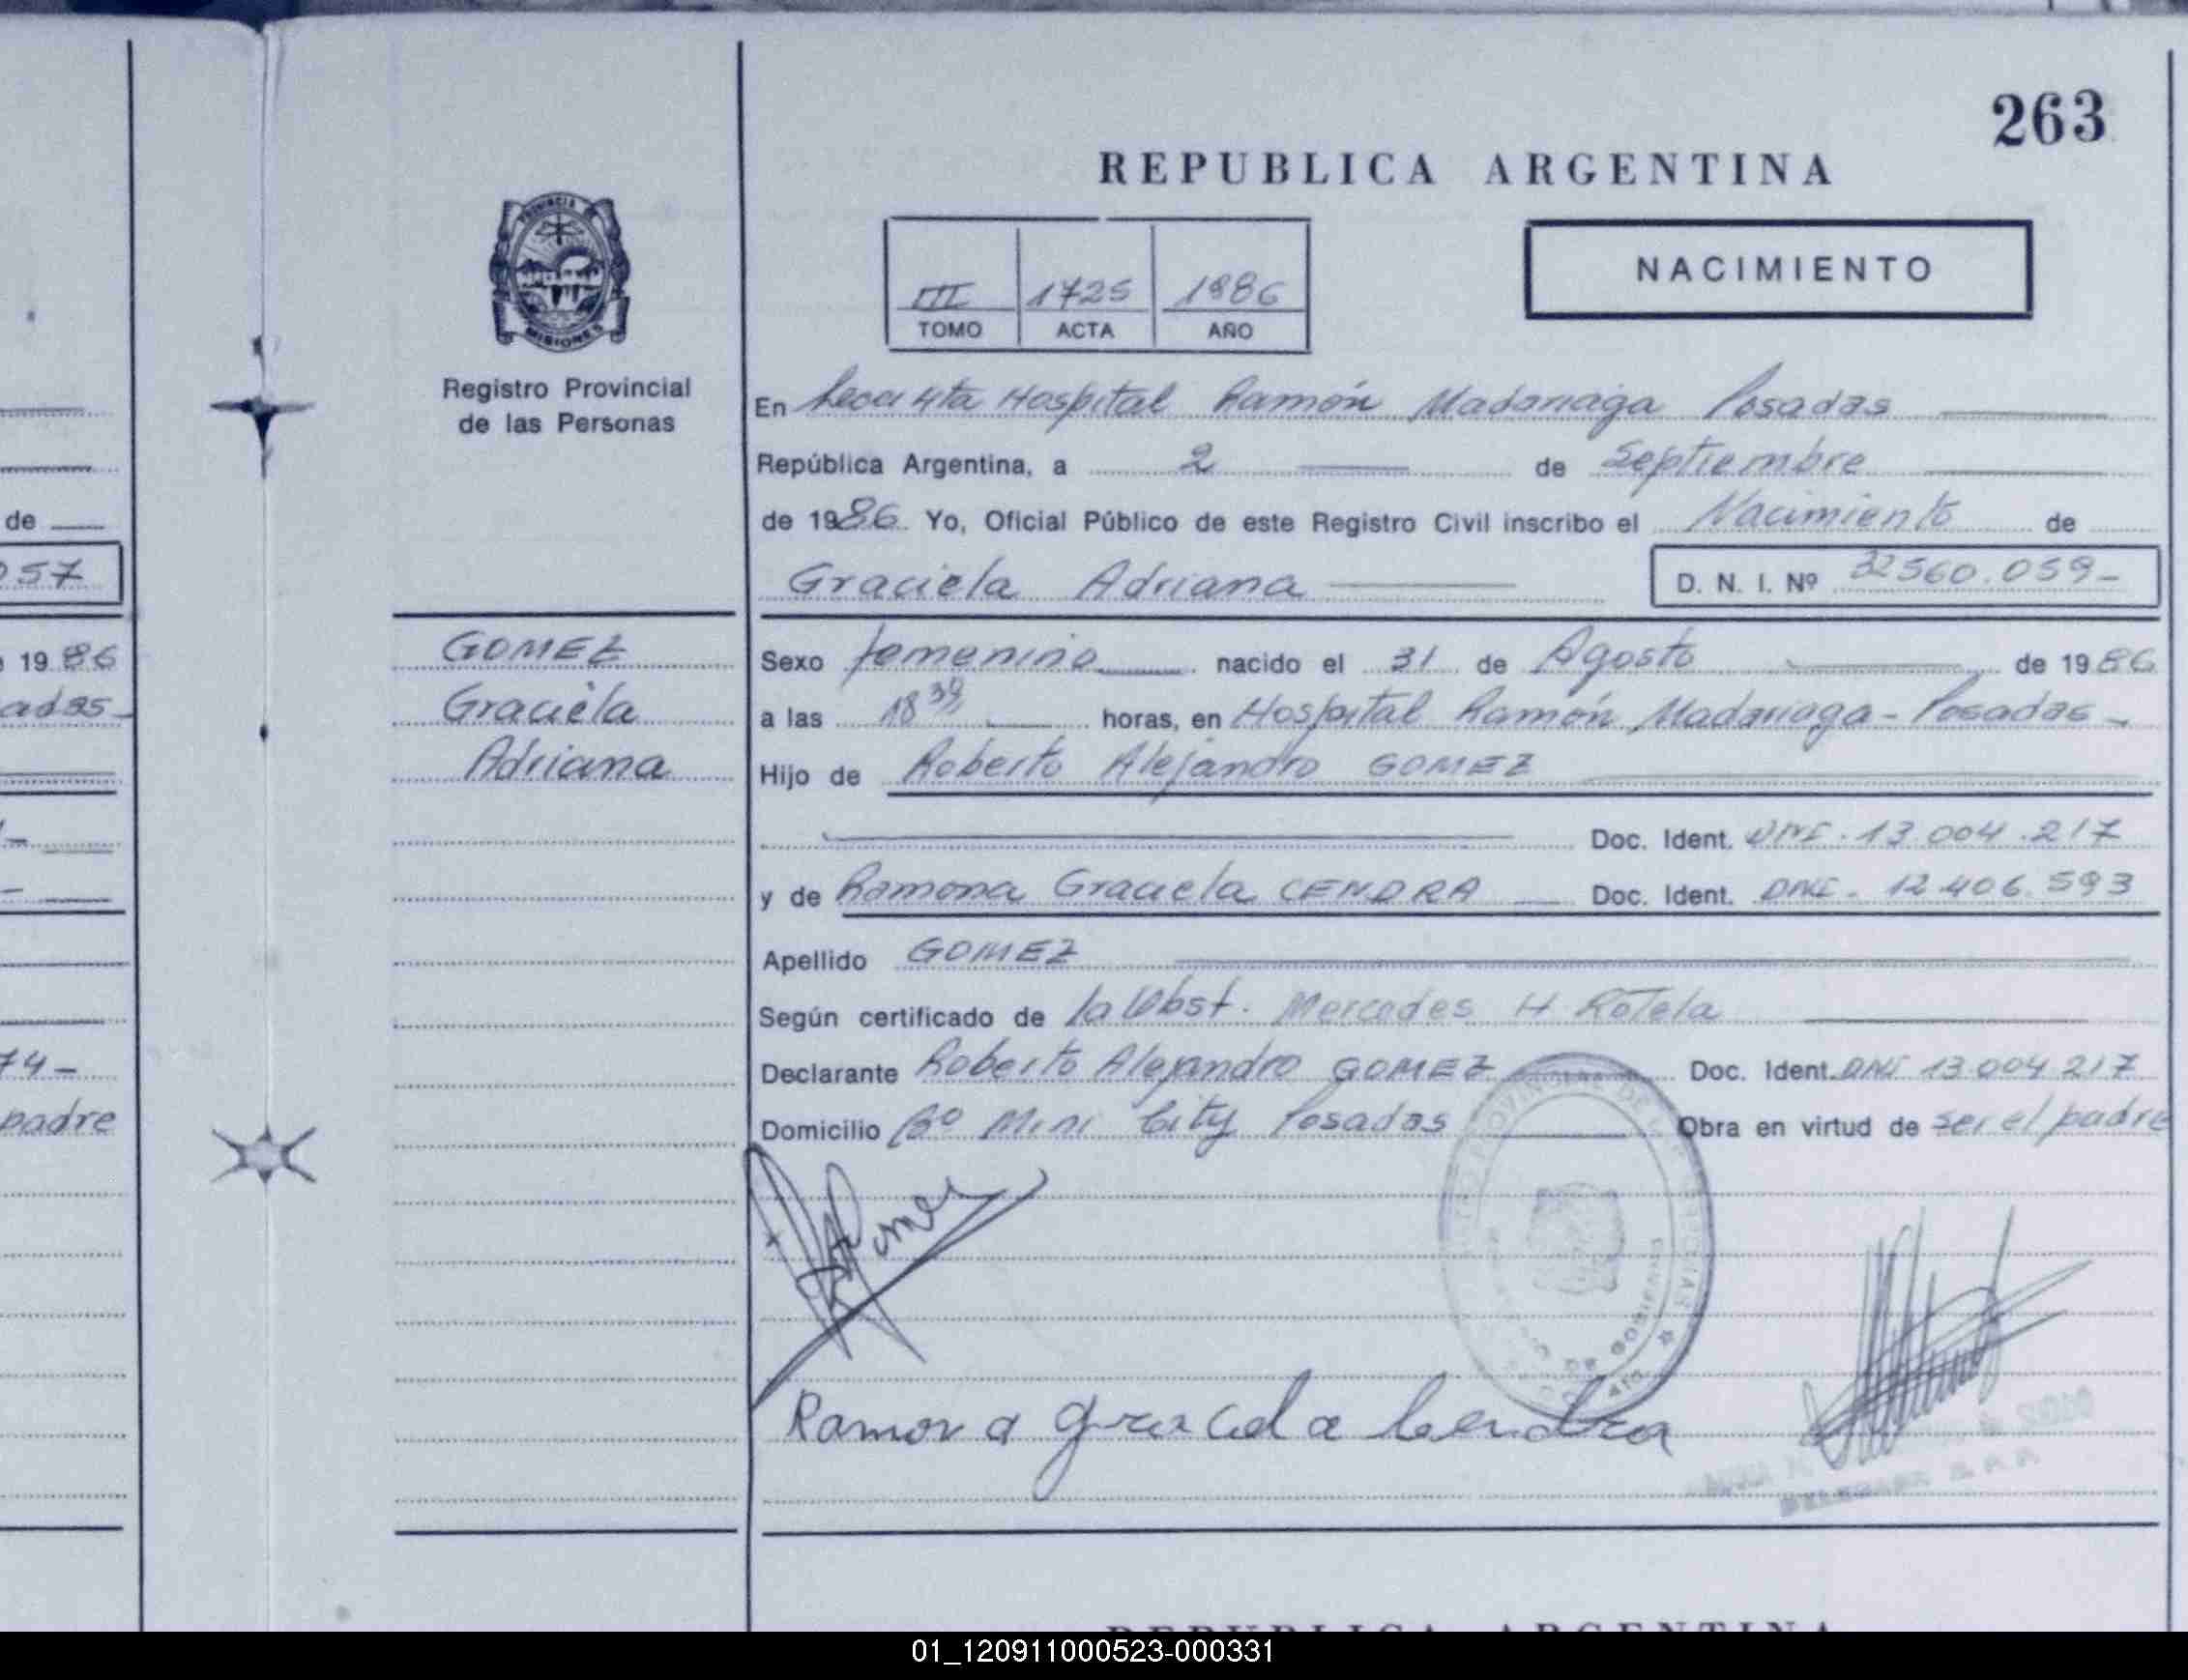 263
REPUBLICA ARGENTINA
PROVINCIA DE
MISIONES
Registro Provincial
de las Personas
III 1725 1986
TOMO ACTA AÑO
NACIMIENTO
En Secc 4ta Hospital Ramón Madariaga Posadas
República Argentina, a 2 de Septiembre
de 1986 Yo, Oficial Público de este Registro Civil inscribo el Nacimiento de
Graciela Adriana
D. N. I. Nº 32560.059-
GOMEZ
Graciela
Adriana
Sexo femenino nacido el 31 de Agosto de 1986
a las 18 30 horas, en Hospital Ramón Madariaga - Posadas -
Hijo de Roberto Alejandro GOMEZ
Doc. Ident. DNI. 13.004.217
y de Ramona Graciela CENDRA Doc. Ident. DNI. 12.406.593
Apellido GOMEZ
Según certificado de la Obst. Mercedes H Rotela
Declarante Roberto Alejandro GOMEZ Doc. Ident. DNI 13 004 217
Domicilio Bº Mini City Posadas Obra en virtud de ser el padre
Gomez
Ramona Graciela Cendra
de
057
1986
adas-
74-
padre
REPUBLICA ARGENTINA
01_120911000523-000331